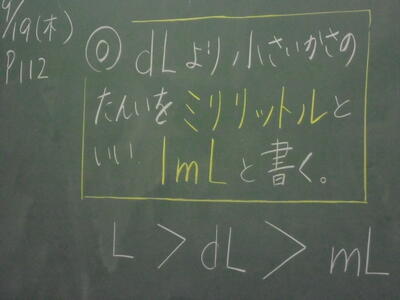 9/19(木)
P112
◎ dLより小さいかさの
たんいをミリリットルと
いい 1mLと書く。
L > dL > mL